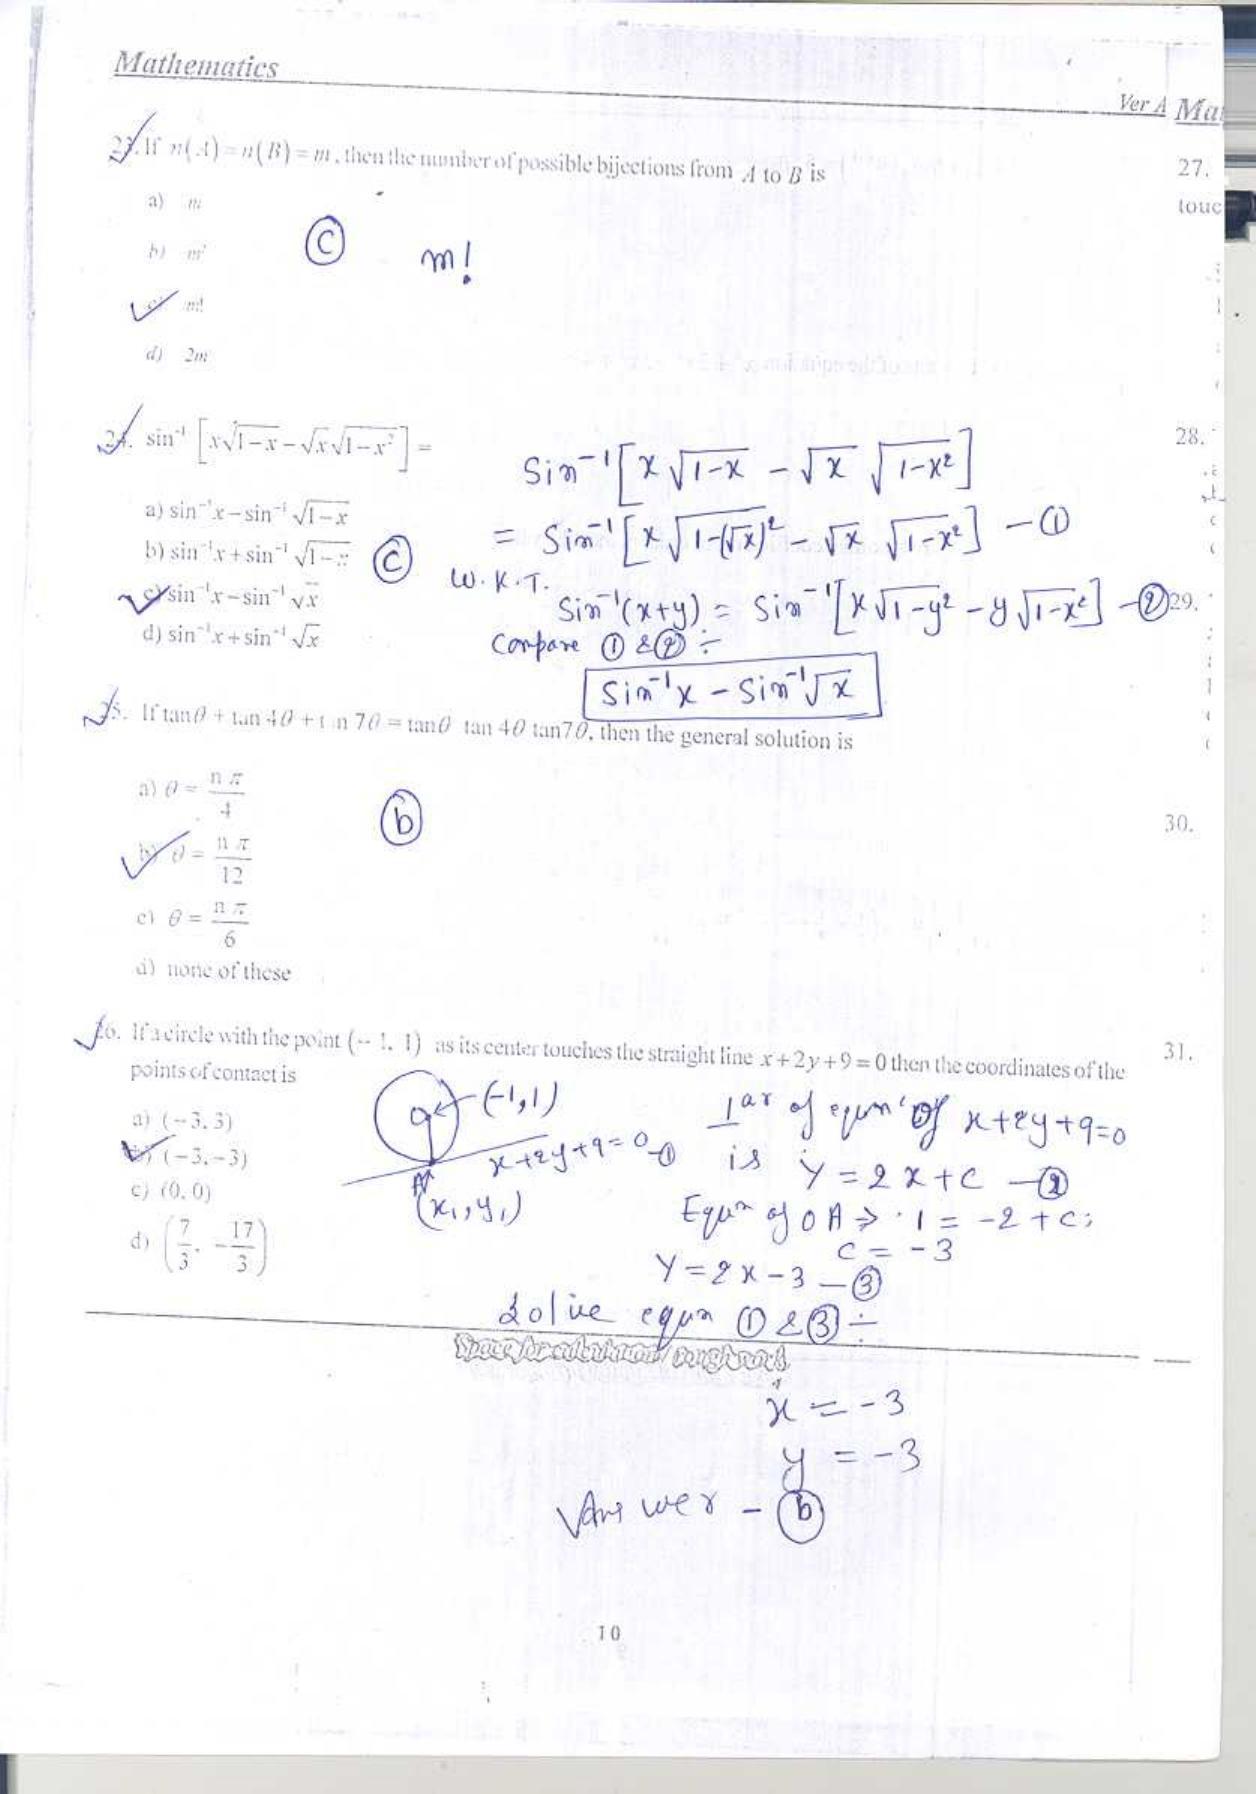 Mathematics
Ver A
Ma
23. If n(A) = n(B) = m, then the number of possible bijections from A to B is
a) m
b) m²
c) m!
d) 2m
ⓒ m!
24. sin⁻¹ [x√(1−x) − √x√(1−x²)] =
a) sin⁻¹x − sin⁻¹ √(1−x)
b) sin⁻¹x + sin⁻¹ √(1−x)
c) sin⁻¹x − sin⁻¹ √x
d) sin⁻¹x + sin⁻¹ √x
ⓒ
Sin⁻¹[x √(1-x) - √x √(1-x²)]
= Sin⁻¹[x √(1-(√x)²) - √x √(1-x²)] - ①
W.K.T.
Sin⁻¹(x+y) = Sin⁻¹[x√(1-y²) - y√(1-x²)] - ②
Compare ① & ② ÷
Sin⁻¹x - Sin⁻¹√x
25. If tanθ + tan 4θ + tan 7θ = tanθ tan 4θ tan7θ, then the general solution is
a) θ = nπ/4
b) θ = nπ/12
c) θ = nπ/6
d) none of these
ⓑ
26. If a circle with the point (−1, 1) as its center touches the straight line x+2y+9=0 then the coordinates of the
points of contact is
a) (−3, 3)
b) (−3, −3)
c) (0, 0)
d) (7/3, −17/3)
(-1,1)
x+2y+9=0 -①
A
(x₁,y₁)
⊥ar of equn of x+2y+9=0
is y = 2x+c -②
Equn of OA ⇒ 1 = -2+c;
c = -3
y=2x-3 -③
Solve equn ① & ③ ÷
Space for calculation/ rough work
x = -3
y = -3
Answer - ⓑ
10
27.
touc
28.
29.
30.
31.